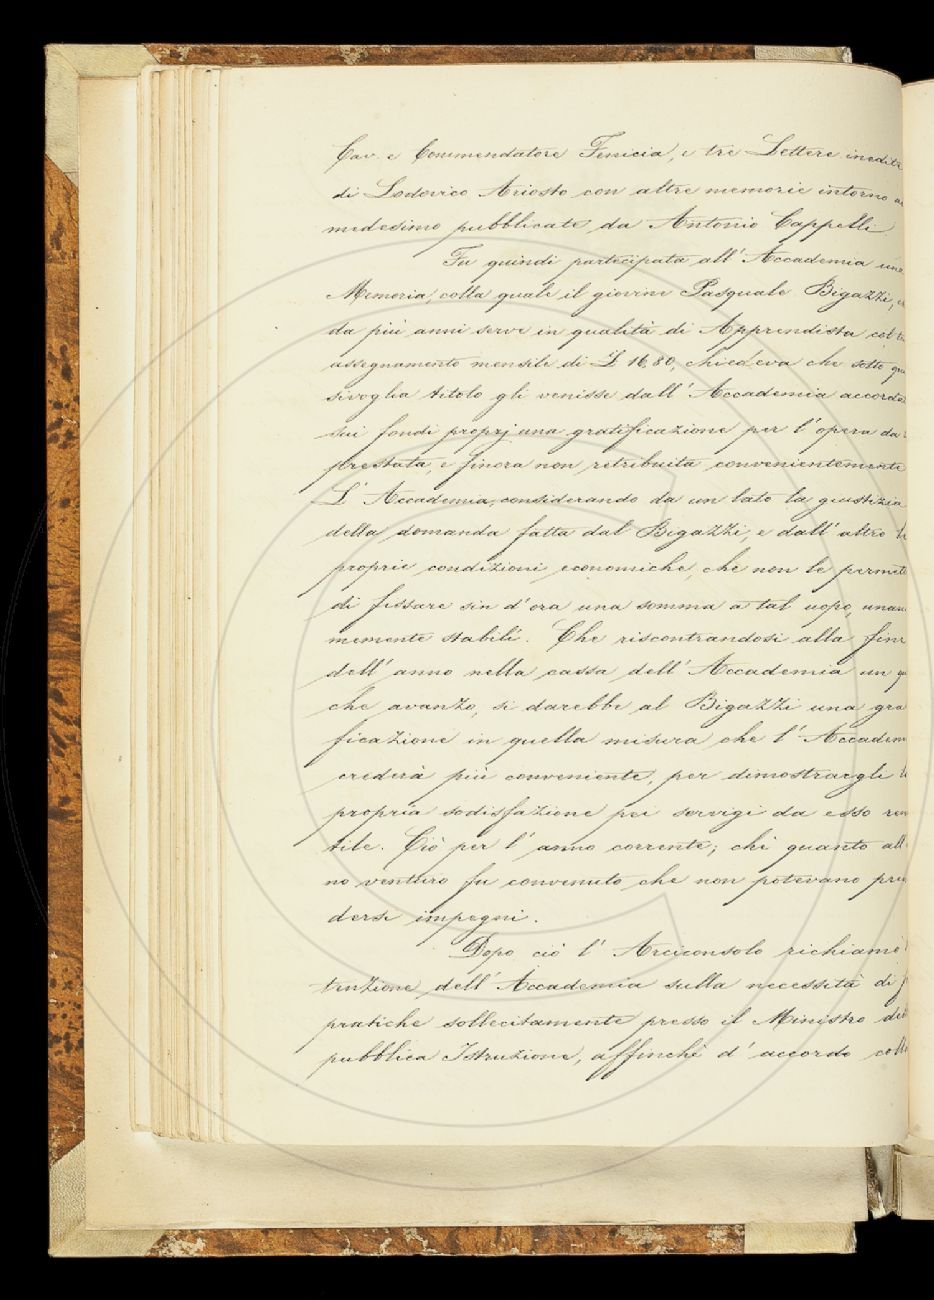 Cav. e Commendatore Fenicia, e tre Lettere inedite
di Lodovico Ariosto con altre memorie intorno
medesimo pubblicate da Antonio Cappelli
Fu quindi partecipata all'Accademia una
Memoria, colla quale il giovine Pasquale Bigazzi,
da più anni serve in qualità di Apprendista col
assegnamento mensile di £ 16,80, chiedeva che sotto
sivoglia titolo gli venisse dall'Accademia
sui fondi proprj una gratificazione per l'opera da
prestata, e finora non retribuita convenientemente
L'Accademia, considerando da un lato la giustizia
della domanda fatta dal Bigazzi, e dall'altro
proprie condizioni economiche, che non le
di fissare sin d'ora una somma a tal uopo,
memente stabilì. Che riscontrandosi alla fine
dell'anno nella cassa dell'Accademia un
che avanzo, si darebbe al Bigazzi una
ficazione in quella misura che l'
crederà più conveniente, per dimostrargli
propria sodisfazione pei servigi da esso
tile. Ciò per l'anno corrente; chè quanto
no venturo fu convenuto che non potevano
dersi impegni.
Dopo ciò l'Arciconsolo richiamò
tenzione dell'Accademia sulla necessità di
pratiche sollecitamente presso il Ministro
pubblica Istruzione, affinchè d'accordo